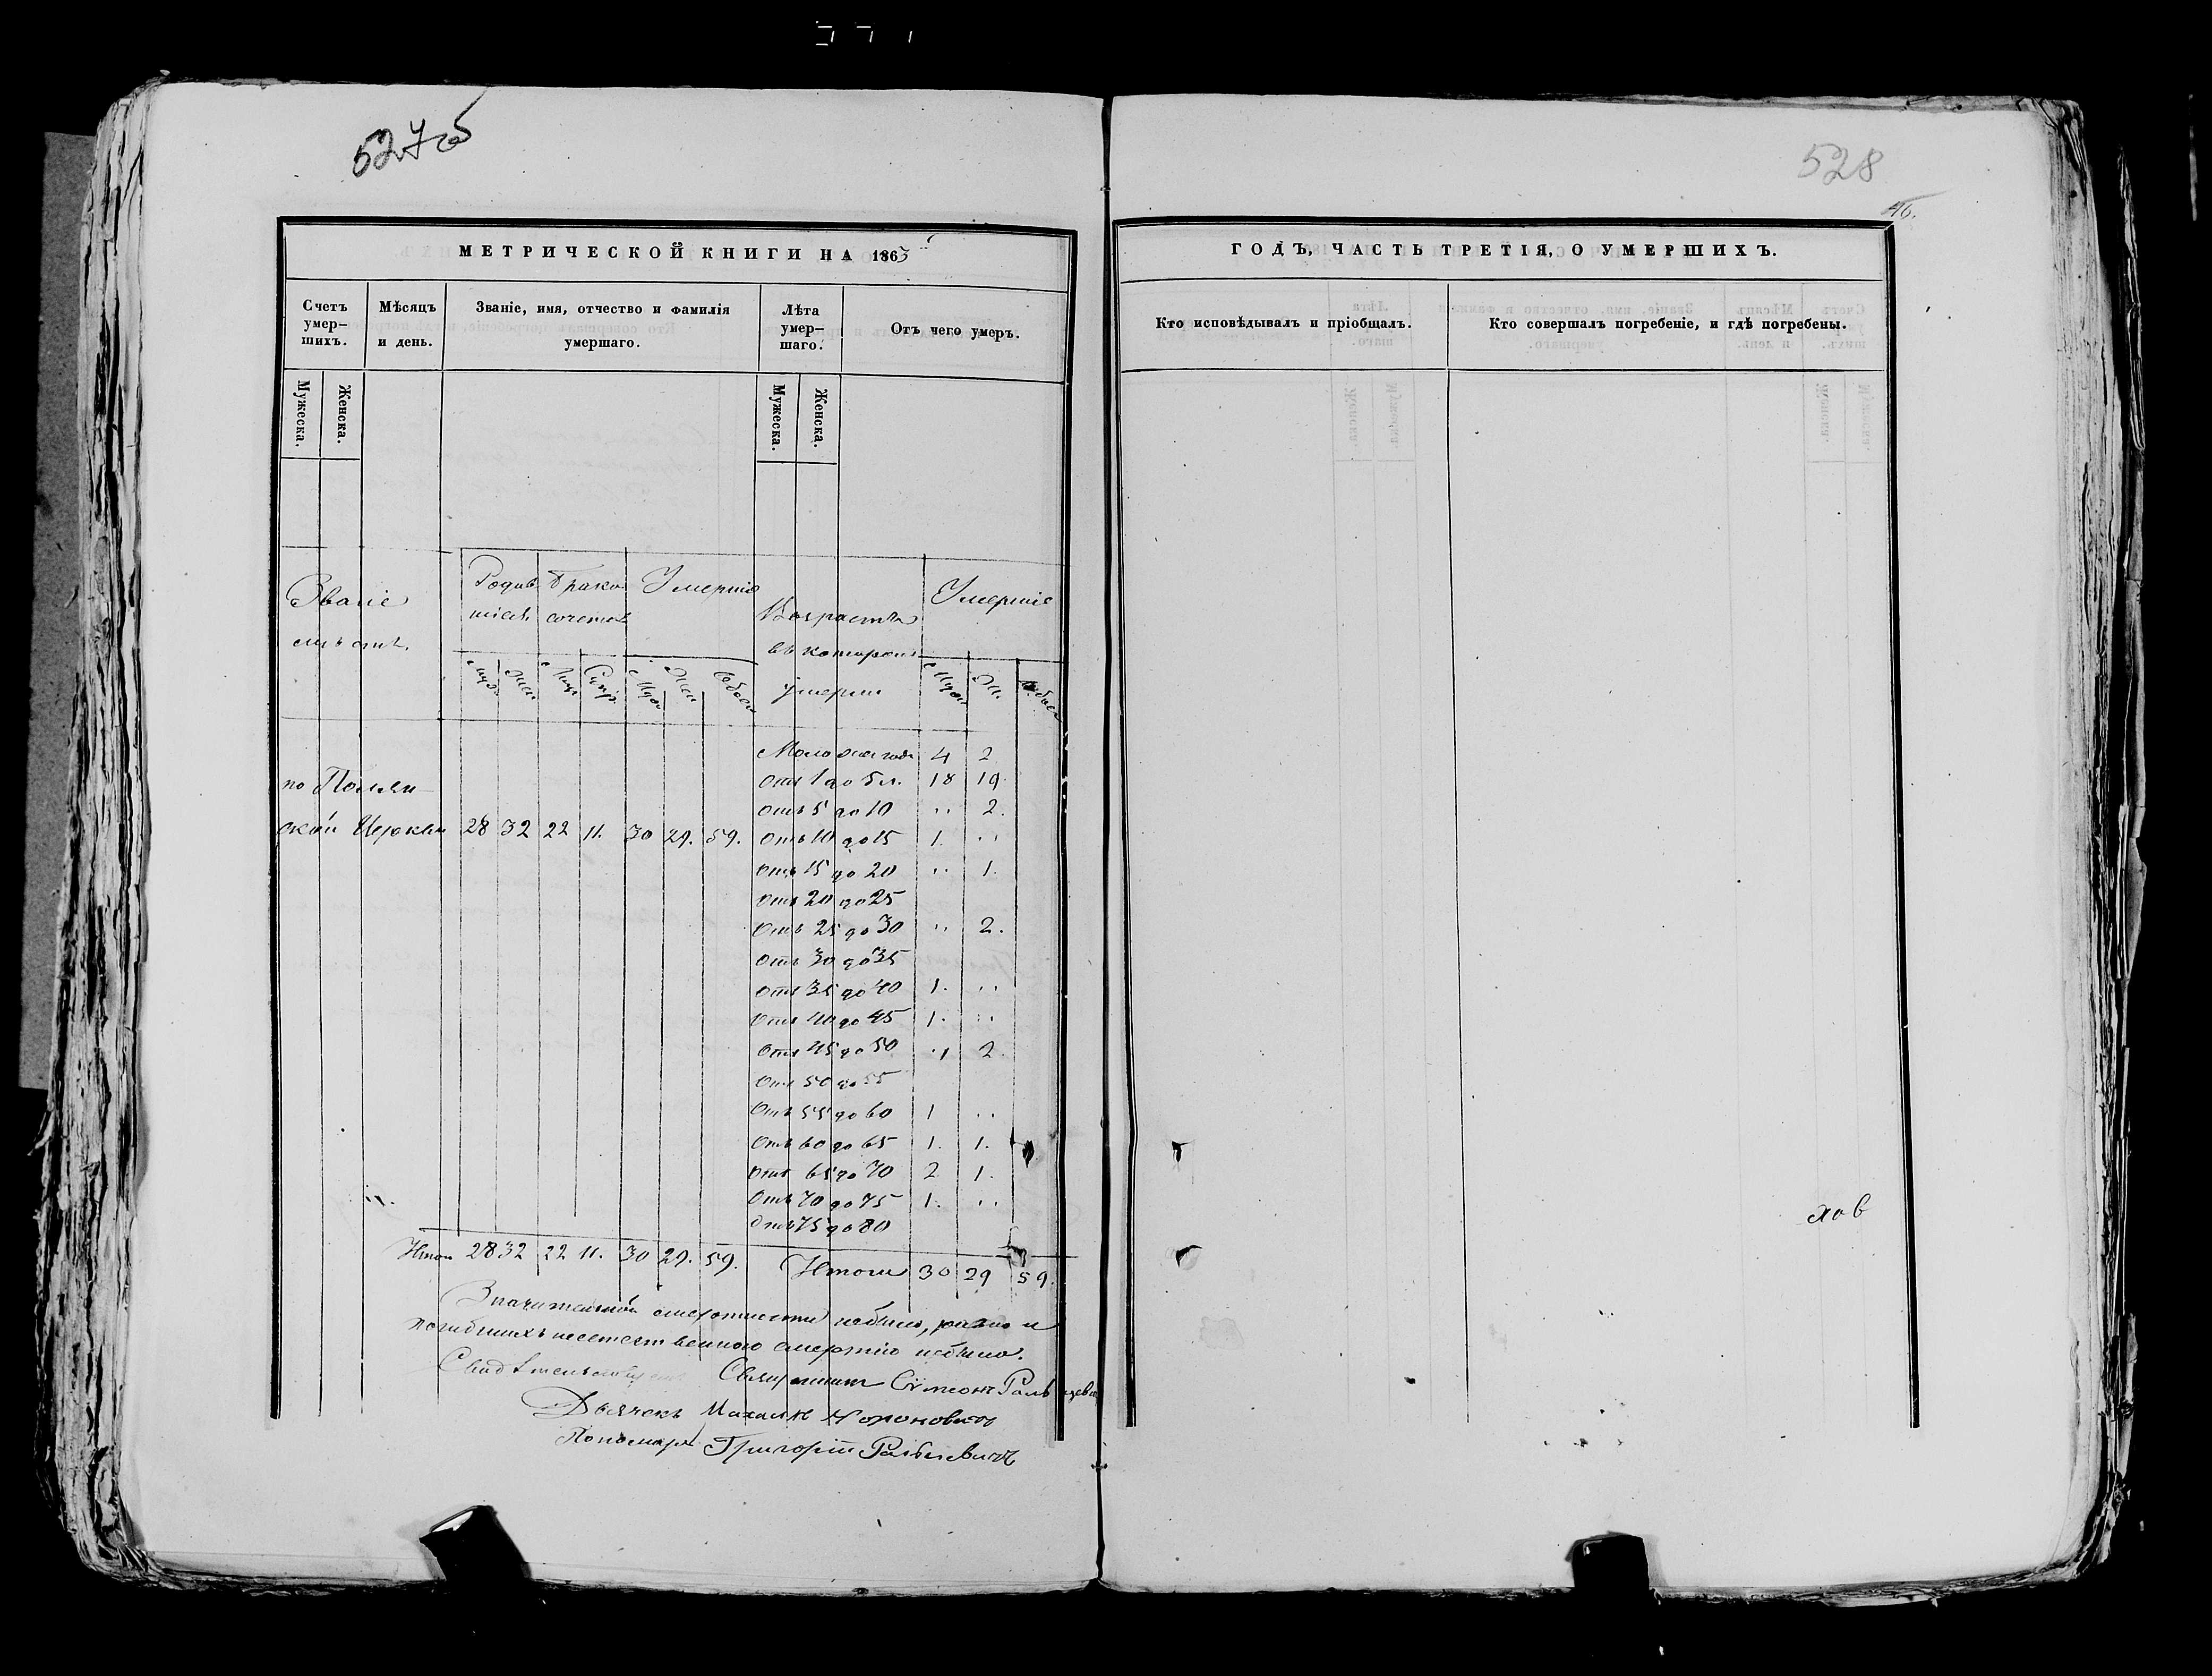 527об
528
46.
МЕТРИЧЕСКОЙ КНИГИ НА 1863
ГОДЪ, ЧАСТЬ ТРЕТІЯ, О УМЕРШИХЪ.
Счетъ умер-шихъ.
Мѣсяцъ и день.
Званіе, имя, отчество и фамилія умершаго.
Лѣта умер-шаго.
Отъ чего умеръ.
Кто исповѣдывалъ и пріобщалъ.
Кто совершалъ погребеніе, и гдѣ погребены.
Мужеска.
Женска.
Мужеска.
Женска.
Званіе
Родив
шіесь
Брако
сочетав
Умершіе
Возрастъ
въ которомъ
умерли
Умершіе
Муж. Жен. Муж. Жен. Обоего
по
ской Церкви 28 32 22 11. 30 29. 59.
Моложе года 4 2
Отъ 1 до 5 л. 18 19.
Отъ 5 до 10 " 2.
Отъ 10 до 15 1. "
Отъ 15 до 20 " 1.
Отъ 20 до 25
Отъ 25 до 30 " 2.
Отъ 30 до 35
Отъ 35 до 40 1. "
Отъ 40 до 45 1. "
Отъ 45 до 50 " 2.
Отъ 50 до 55
Отъ 55 до 60 1 "
Отъ 60 до 65 1. 1.
Отъ 65 до 70 2 1.
Отъ 70 до 75 1. "
Отъ 75 до 80
Итого 28 32 22 11. 30 29. 59. Итого 30 29 59.
Значительной смертности небыло, равно и
погибшихъ неестественною смертію небыло.
Священникъ Сѵмеонъ
Дьячекъ Михаилъ
Пономарь Григорій